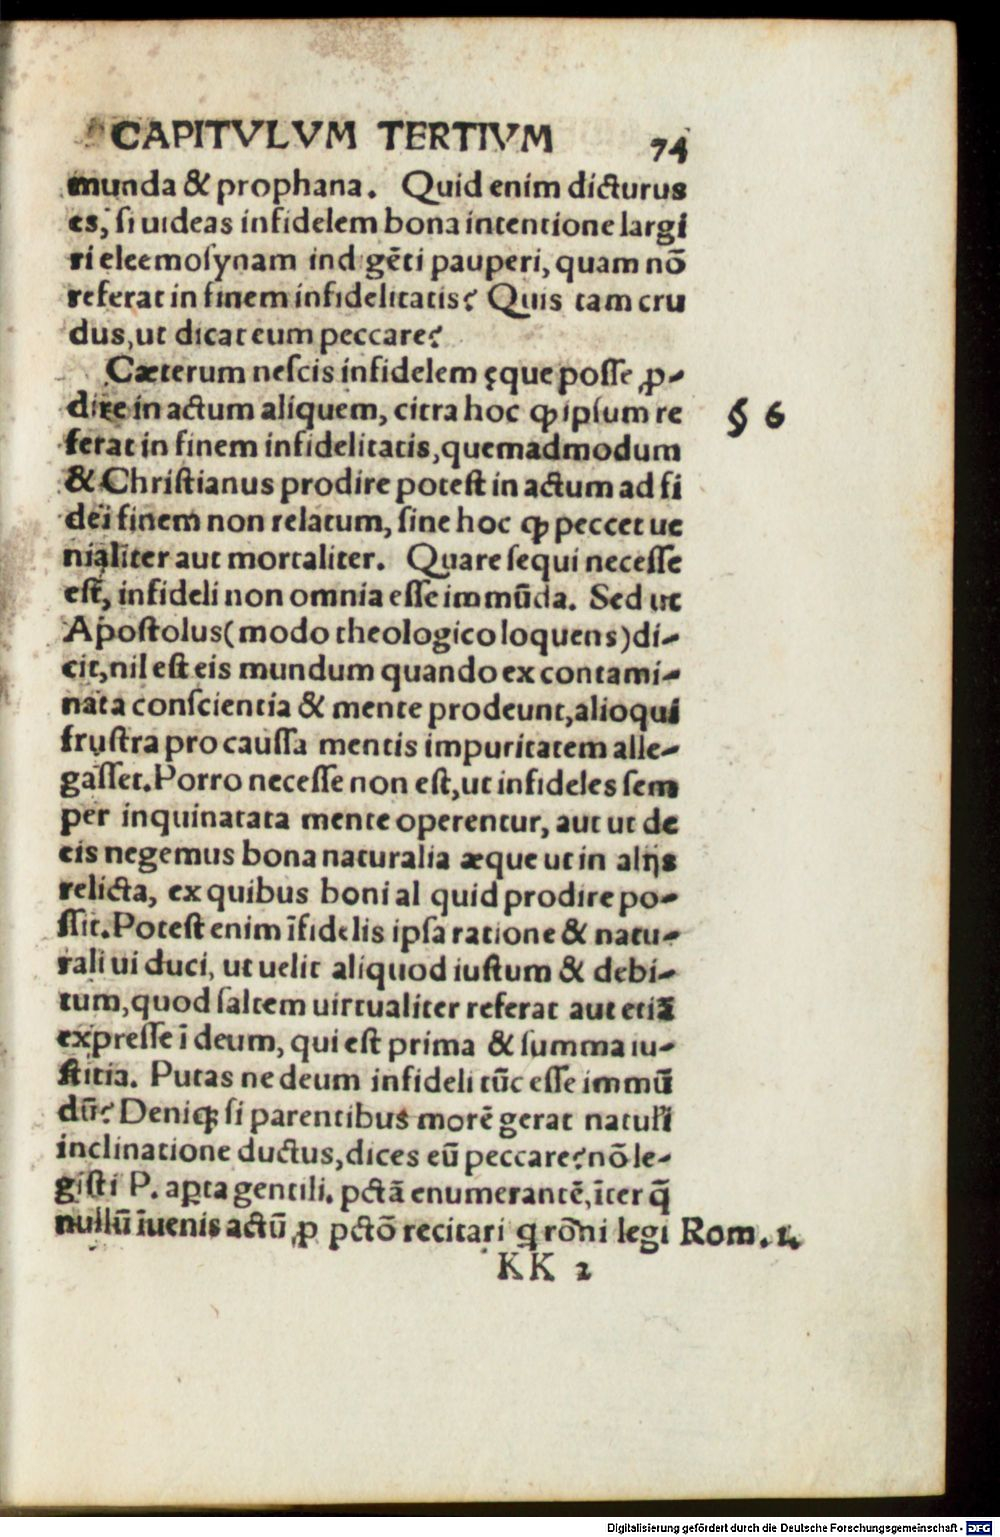 CAPITVLVM TERTIVM 74
munda & prophana. Quid enim dicturus
es, ſi uideas infidelem bona intentione largi
ri eleemoſynam ind gẽti pauperi, quam nõ
referat in finem infidelitatis? Quis tam cru
dus, ut dicat eum peccare?
Cæterum neſcis infidelem ęque poſſe ꝓ-
dire in actum aliquem, citra hoc ꝙ ipſum re
§ 6
ferat in finem infidelitatis, quemadmodum
& Chriſtianus prodire poteſt in actum ad fi
dei finem non relatum, ſine hoc ꝙ peccet ue
nialiter aut mortaliter. Quare ſequi neceſſe
eſt, infideli non omnia eſſe immũda. Sed ut
Apoſtolus (modo theologico loquens) di-
cit, nil eſt eis mundum quando ex contami-
nata conſcientia & mente prodeunt, alioqui
fruſtra pro cauſſa mentis impuritatem alle-
gaſſet. Porro neceſſe non eſt, ut infideles ſem
per inquinatata mente operentur, aut ut de
eis negemus bona naturalia æque ut in alijs
relicta, ex quibus boni al quid prodire po-
ſſit. Poteſt enim ĩfidelis ipſa ratione & natu-
rali ui duci, ut uelit aliquod iuſtum & debi-
tum, quod ſaltem uirtualiter referat aut etiã
expreſſe ĩ deum, qui eſt prima & ſumma iu-
ſtitia. Putas ne deum infideli tũc eſſe immũ
dũ? Deniqꝫ ſi parentibus morẽ gerat
inclinatione ductus, dices eũ peccare? nõ le-
giſti P. aꝑta gentili. pctã enumerantẽ, ĩter q̃
nullũ ĩuenis actũ, ꝓ pctõ recitari q rõni legi Rom. 1.
KK 2
Digitalisierung gefördert durch die Deutsche Forschungsgemeinschaft - DFG